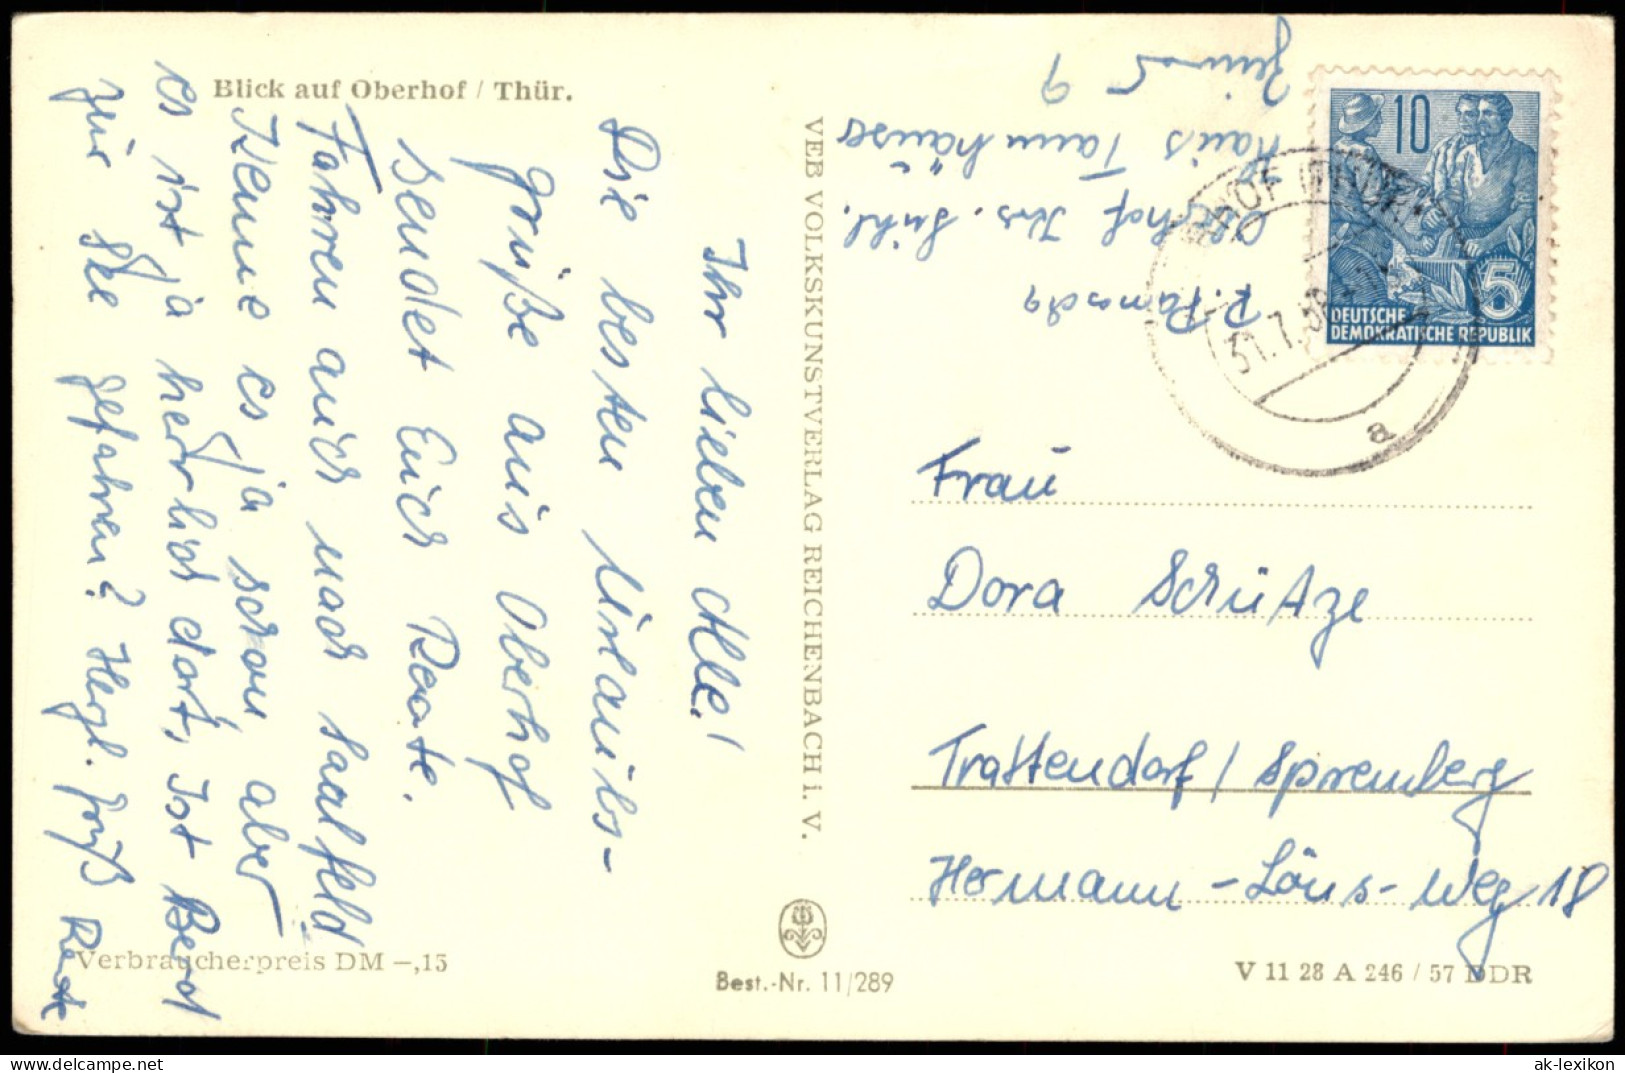 Blick auf Oberhof / Thür.
Ihr lieben Alle!
Die besten Urlaubs-
grüße aus Oberhof
sendet Euch Renate.
Fahren auch nach Saalfeld
kenne es ja schon, aber
es ist ja herrlich dort, Ist Bernd
zur See gefahren? Herzl. Gruß Renate
Verbraucherpreis DM –,15
VEB VOLKSKUNSTVERLAG REICHENBACH i. V.
Best.-Nr. 11/289
Haus Tannhäuser
Oberhof Krs. Suhl.
HOF (THÜR
31.7.58
a
10
5
DEUTSCHE
DEMOKRATISCHE REPUBLIK
Frau
Dora Schütze
Trattendorf / Spremberg
Hermann-Löns-Weg 18
V 11 28 A 246 / 57 DDR
ak-lexikon